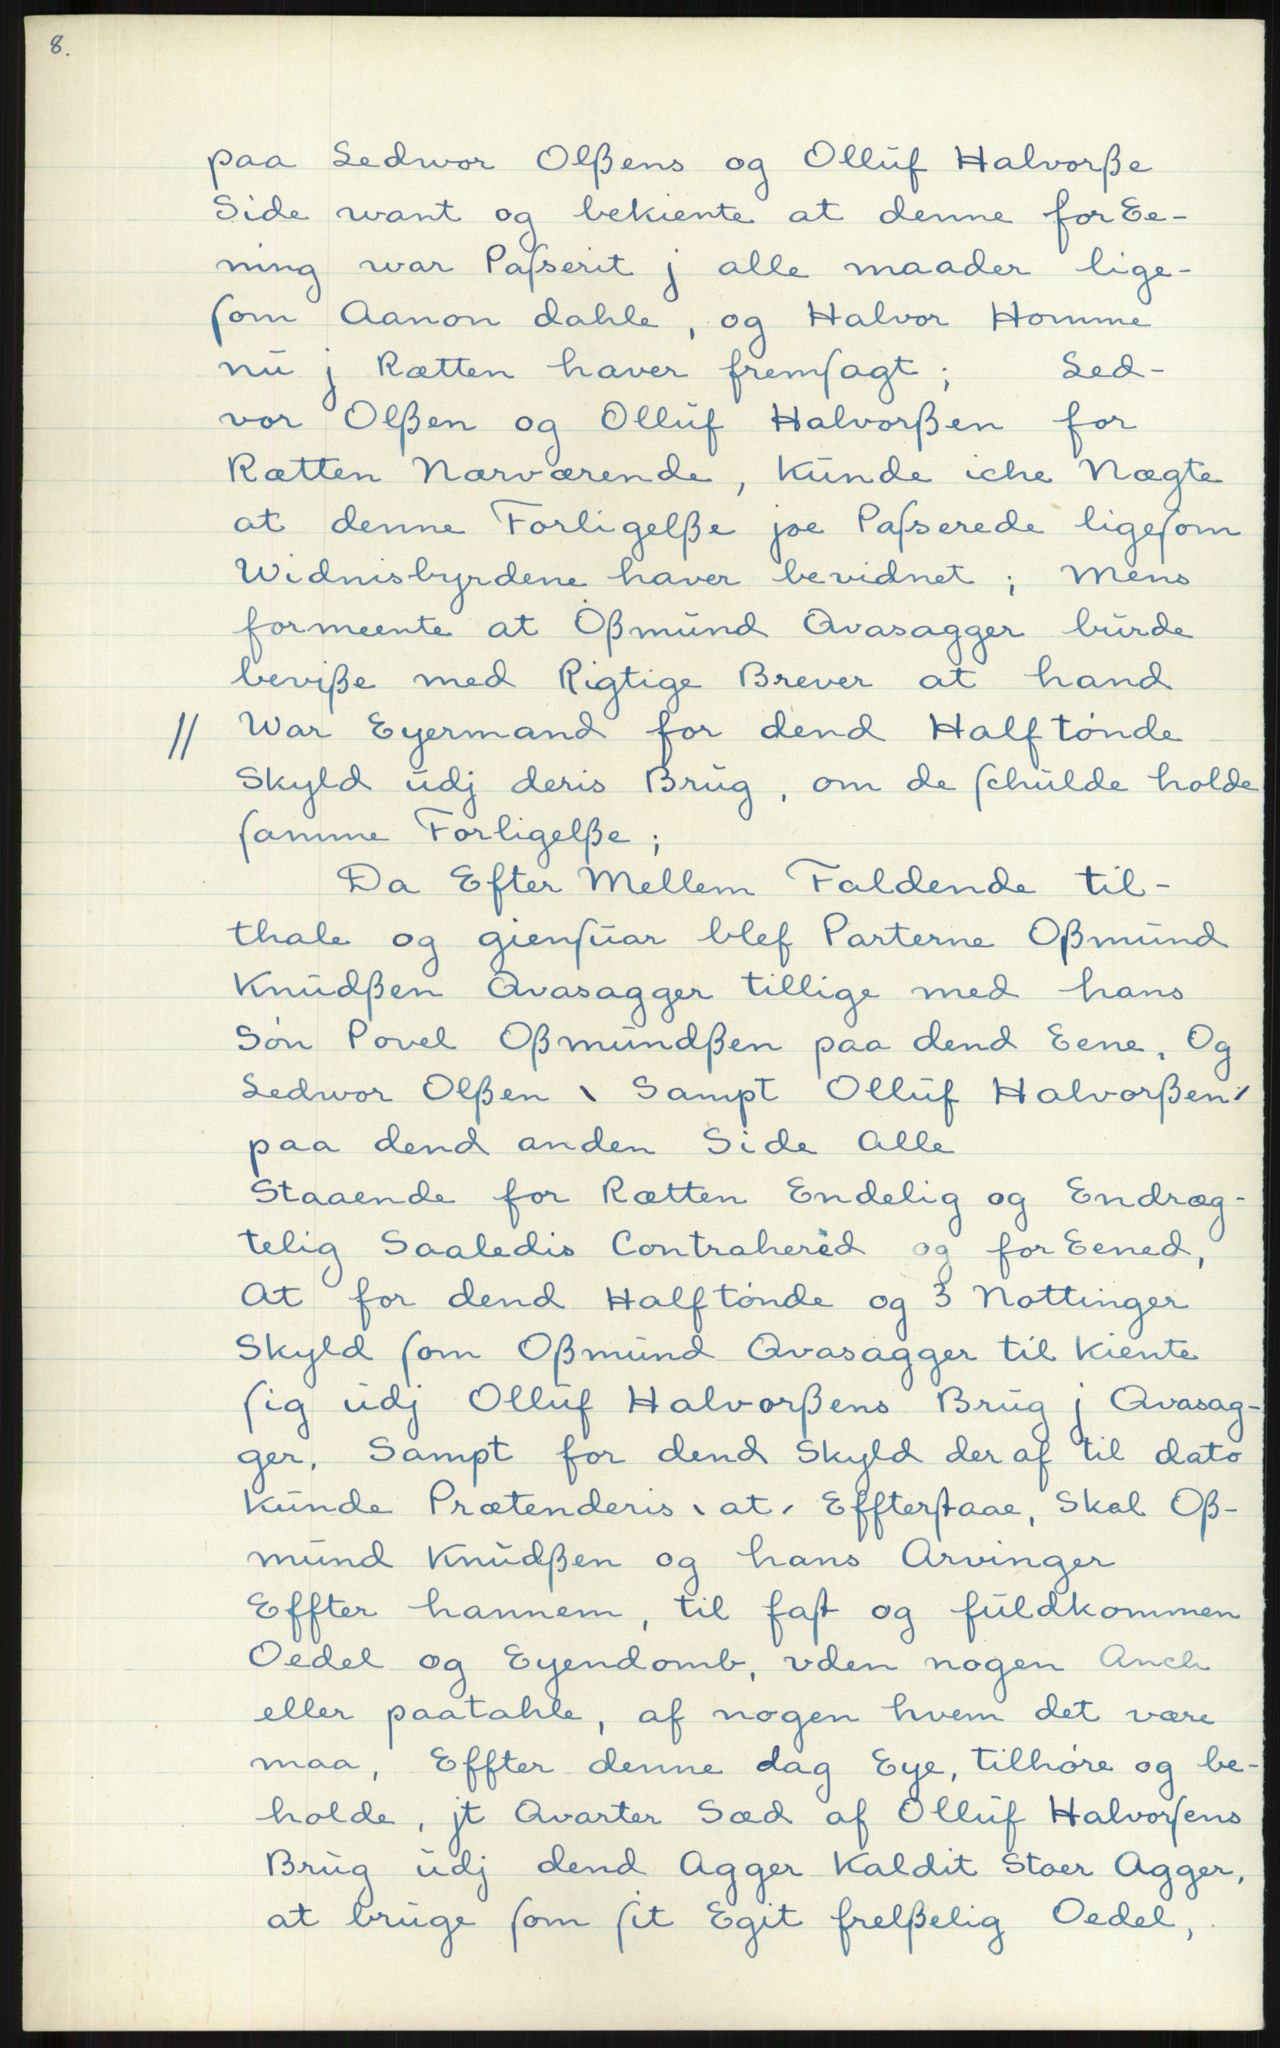 8.
paa Sedwor Olßens og Ollüf Halvorße
Side want og bekiente at denne for Ee-
ning war Paſserit j alle maader lige-
ſom Aanon dahle, og Halvor Homme
nü j Rætten haver fremſagt; Sed-
vor Olßen og Ollüf Halvorßen for
Rætten Nærværende, künde iche Nægte
at denne Forligelße joe Paſserede ligeſom
Widnisbyrdene haver bevidnet; Mens
formeente at Oßmünd Qvasagger bürde
beviße med Rigtige Brever at hand
// War Eyermand for dend Halftønde
Skyld üdj deris Brüg, om de ſchülde holde
ſamme Forligelße;
Da Efter Mellem Faldende til-
thale og gienſüar blef Parterne Oßmünd
Knüdßen Qvasagger tillige med hans
Søn Povel Oßmündßen paa dend Eene, Og
Sedwor Olßen \ Sampt Ollüf Halvorßen /
paa dend anden Side Alle
Staaende for Rætten Endelig og Endræg-
telig Saaledis Contraheréd og for Eened,
At for dend Halftønde og 3 Nottinger
Skyld ſom Oßmünd Qvasagger til kiente
ſig üdj Ollüf Halvorßens Brüg j Qvasag-
ger, Sampt for dend Skyld der af til dato
künde Prætenderis \ at / Effterſtaae, Skal Oß-
münd Knüdßen og hans Arvinger
Effter hannem, til faſt og füldkommen
Oedel og Eyendomb, vden nogen Anch
eller paatahle, af nogen hvem det være
maa, Effter denne dag Eye, tilhøre og be-
holde, jt Qvarter Sæd af Ollüf Halvorſens
Brüg üdj dend Agger kaldit Stoer Agger,
at brüge ſom ſit Egit frelßelig Oedel,